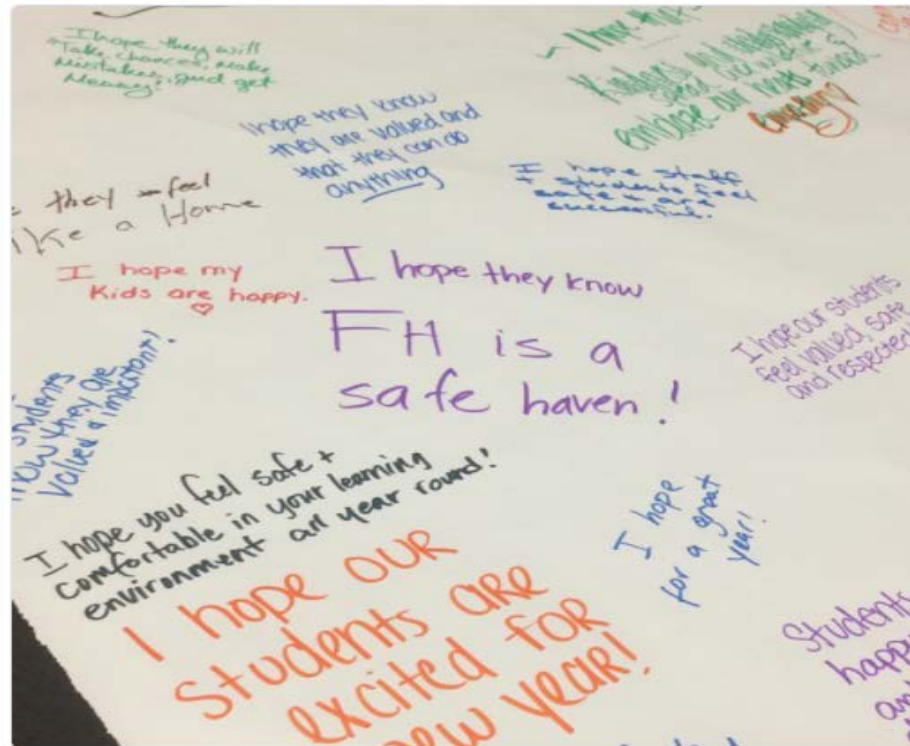 I hope they will
Take chances, make
mistakes, and get
Messy!
I hope they know
they are valued and
that they can do
anything
I hope that
Kinders
embrace our
everything
I hope staff
+ students feel
safe + are
successful.
they feel
like a Home
I hope my
Kids are happy.
I hope they know
FH is a
safe haven!
I hope our students
feel valued, safe
and respected!
students
know they are
valued & important!
I hope you feel safe +
comfortable in your learning
environment all year round!
I hope
for a great
year!
I hope our
students are
excited for
new year!
Students
happy